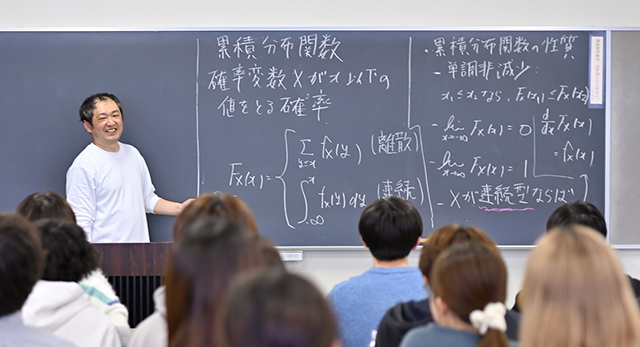 累積分布関数
確率変数Xがx以下の
値をとる確率
Fx(x) = {
Σ y≤x fx(y) (離散)
∫ -∞ x fx(y) dy (連続)
・累積分布関数の性質
- 単調非減少:
x₁≤x₂なら, Fx(x₁)≤Fx(x₂)
- lim x→-∞ Fx(x) = 0
- lim x→∞ Fx(x) = 1
- Xが連続型ならば
d/dx Fx(x)
= fx(x)